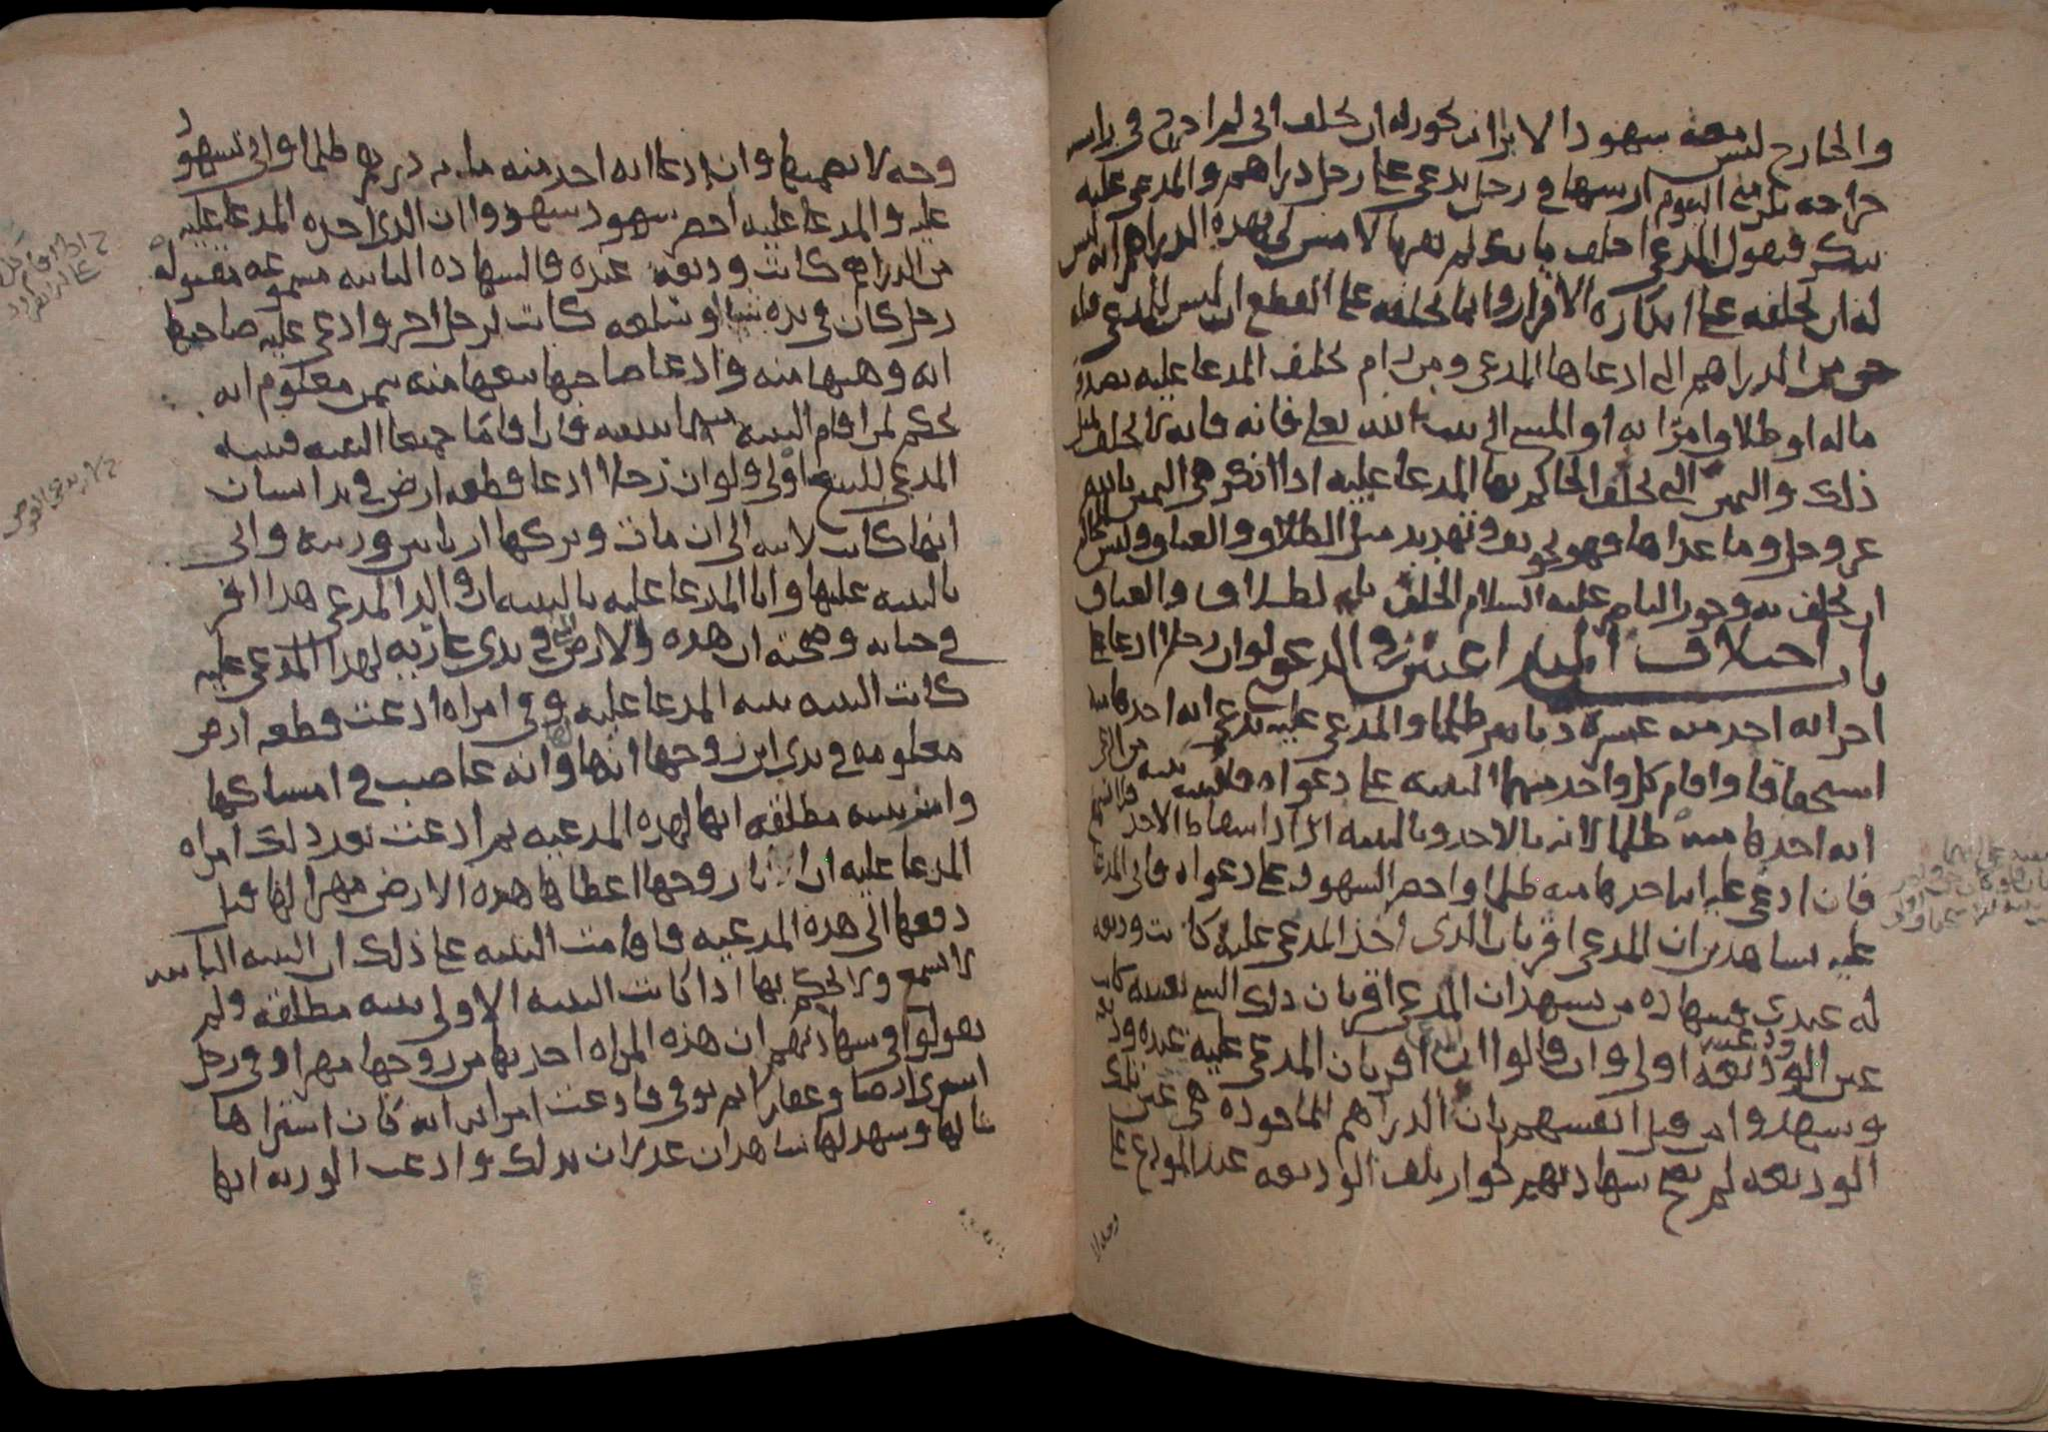 والخارج ليس معه شهود الا براب يجوز له ان يحلف اني لم اخرج في براسه
جراحه بكر مني اليوم ارسها في رجل يدعي على رجل دراهم والمدعى عليه
ينكر فيقول المدعي احلف بانك لم تقر بالامس لي بهذه الدراهم انه ليس
له ان يحلفه على انكاره الاقرار وانما يحلفه على القطع ان ليس للمدعي قبله
حق من الدراهم التي ادعاها المدعي ومن رام تحليف المدعا عليه بصدقه
ماله او طلاق امراته او المشي الى بيت الله تعالى فانه فانه لا يحلف لمثل
ذلك واليمين التي يحلف الحاكم بها المدعا عليه اذا انكر هي اليمين بالله
عز وجل وما عداها فهو تخويف وتهديد مثل الطلاق والعتاق وليس للحاكم
ان يحلف به وجوز الناصر عليه السلام الحلف بالطلاق والعتاق
باب اختلاف المتداعيين في الدعوى لو ان رجلا ادعا على
اخر انه اخذ منه عشرة دنانير ظلما والمدعى عليه يدعي انه اخذها منه
استحقاقا واقام كل واحد منهما البينه على دعواه فالبينه بينه من ادعى
انه اخذها منه ظلما لانه بالاخذ وبالبينه اراد اسقاط الاخذ
فان ادعى عليه انه اخذها منه ظلما واحضر الشهود على دعواه فاتى المدعا
عليه بشاهدين ان المدعي اقر بان الذي اخذ المدعى عليه كانت وديعه
له عندي فشهاده من يشهد ان المدعي اقر بان ذلك الشي بعينه كان
عين الوديعه اولى وان قالوا ان اقر بان المدعى عليه عنده وديعه
وشهدوا من قبل انفسهم بان الدراهم الماخوذه هي غير تلك
الوديعه لم تصح شهادتهم لجواز تلف الوديعه عند المودع على
وجه لا
وجه لا يضمنها وان ادعا انه اخذ منه مايه درهم ظلما واتى بشهود
عليه والمدعا عليه احضر شهود شهدوا ان الذي اخذه المدعا عليه
من الدراهم كانت وديعه عنده فالشهاده الثانيه مسموعه مقبوله
رجل كان في يده شيا او سلعه كانت لرجل اخر وادعى عليه صاحبها
انه وهبها منه وادعا صاحبها بيعها منه بثمن معلوم انه
يحكم لمن اقام البينه منهما ببينته فان اقاما جميعا البينه فبينه
المدعي للبيع اولى ولو ان رجلا ادعا قطعه ارض في يد انسان
انها كانت لابيه الى ان مات وتركها ارثا بين ورثته واتى
بالبينه عليها واتا المدعا عليه بالبينه ان والد المدعي هذا اقر
في حياته وصحته ان هذه الارض التي في يدي عاريه لهذا المدعى عليه
كانت البينه بينه المدعا عليه وفي امراه ادعت قطعه ارض
معلومه في يدي ابن زوجها انها وانه غاصب في امساكها
واتت ببينه مطلقه انها لهذه المدعيه ثم ادعت بعد ذلك امراه
المدعا عليه ان زوجها اعطاها هذه الارض مهرا لها قبل
دفعها الى هذه المدعيه فاقامت البينه على ذلك ان البينه الثانيه
لا تسمع ولا يحكم بها اذا كانت البينه الاولى بينه مطلقه ولم
يقولوا في شهادتهم ان هذه المراه اخذتها من زوجها مهرا وفي رجل
اشترى ارضا وعقارا ثم توفي فادعت امراته انه كان اشتراها
بمالها وشهد لها شاهدان عدلان بذلك وادعت الورثه انها